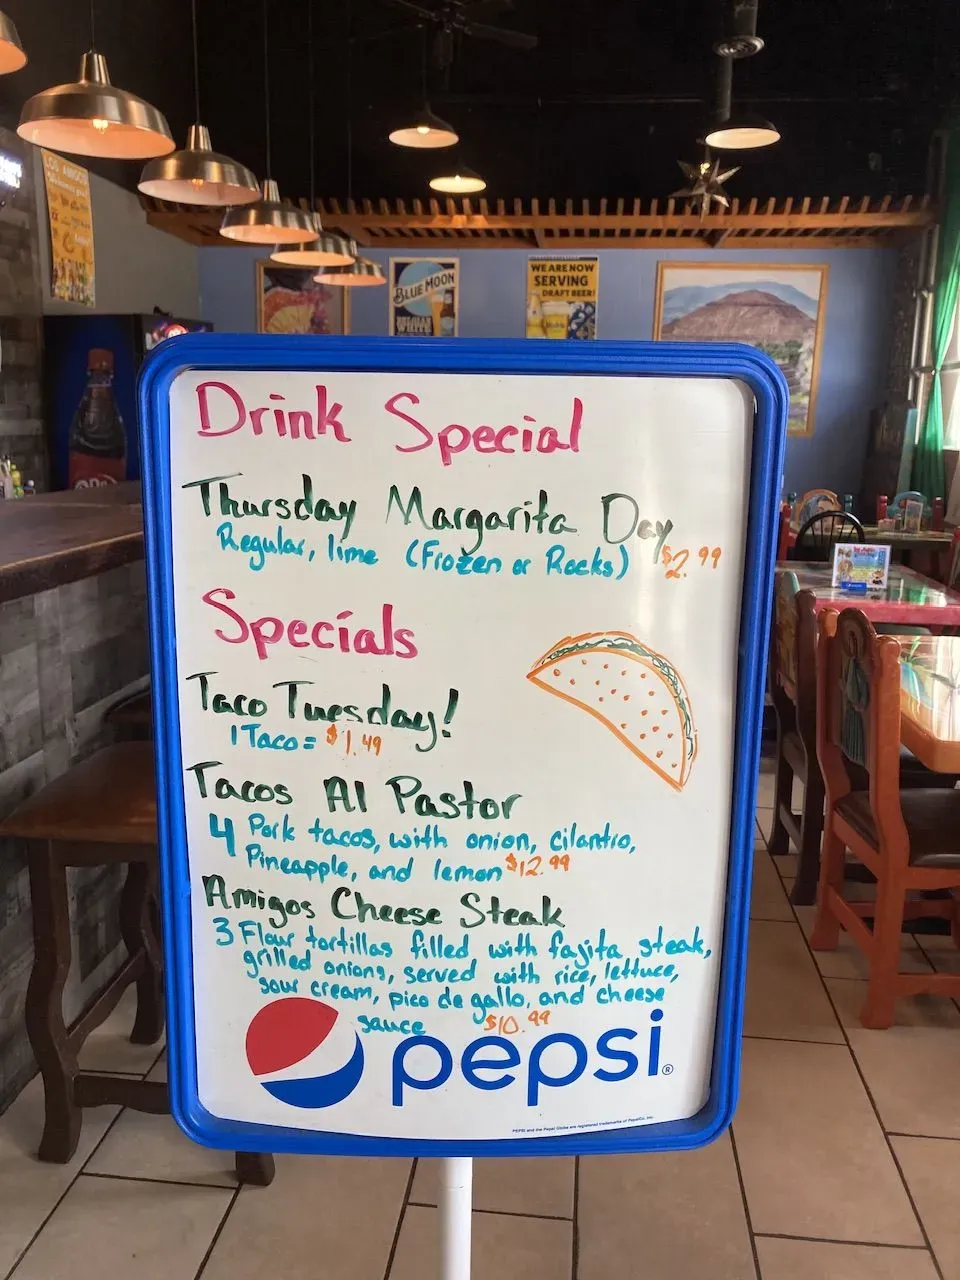 LOS AMIGOS
BLUE MOON
BELGIAN
WHITE
WE ARE NOW
SERVING
DRAFT BEER!
Drink Special
Thursday Margarita Day
Regular, lime (Frozen or Rocks) $2.99
Specials
Taco Tuesday!
1 Taco = $1.49
Tacos Al Pastor
4 Pork tacos, with onion, cilantro,
Pineapple, and lemon $12.99
Amigos Cheese Steak
3 Flour tortillas filled with fajita steak,
grilled onions, served with rice, lettuce,
sour cream, pico de gallo, and cheese
sauce $10.99
pepsi®
PEPSI and the Pepsi Globe are registered trademarks of PepsiCo, Inc.